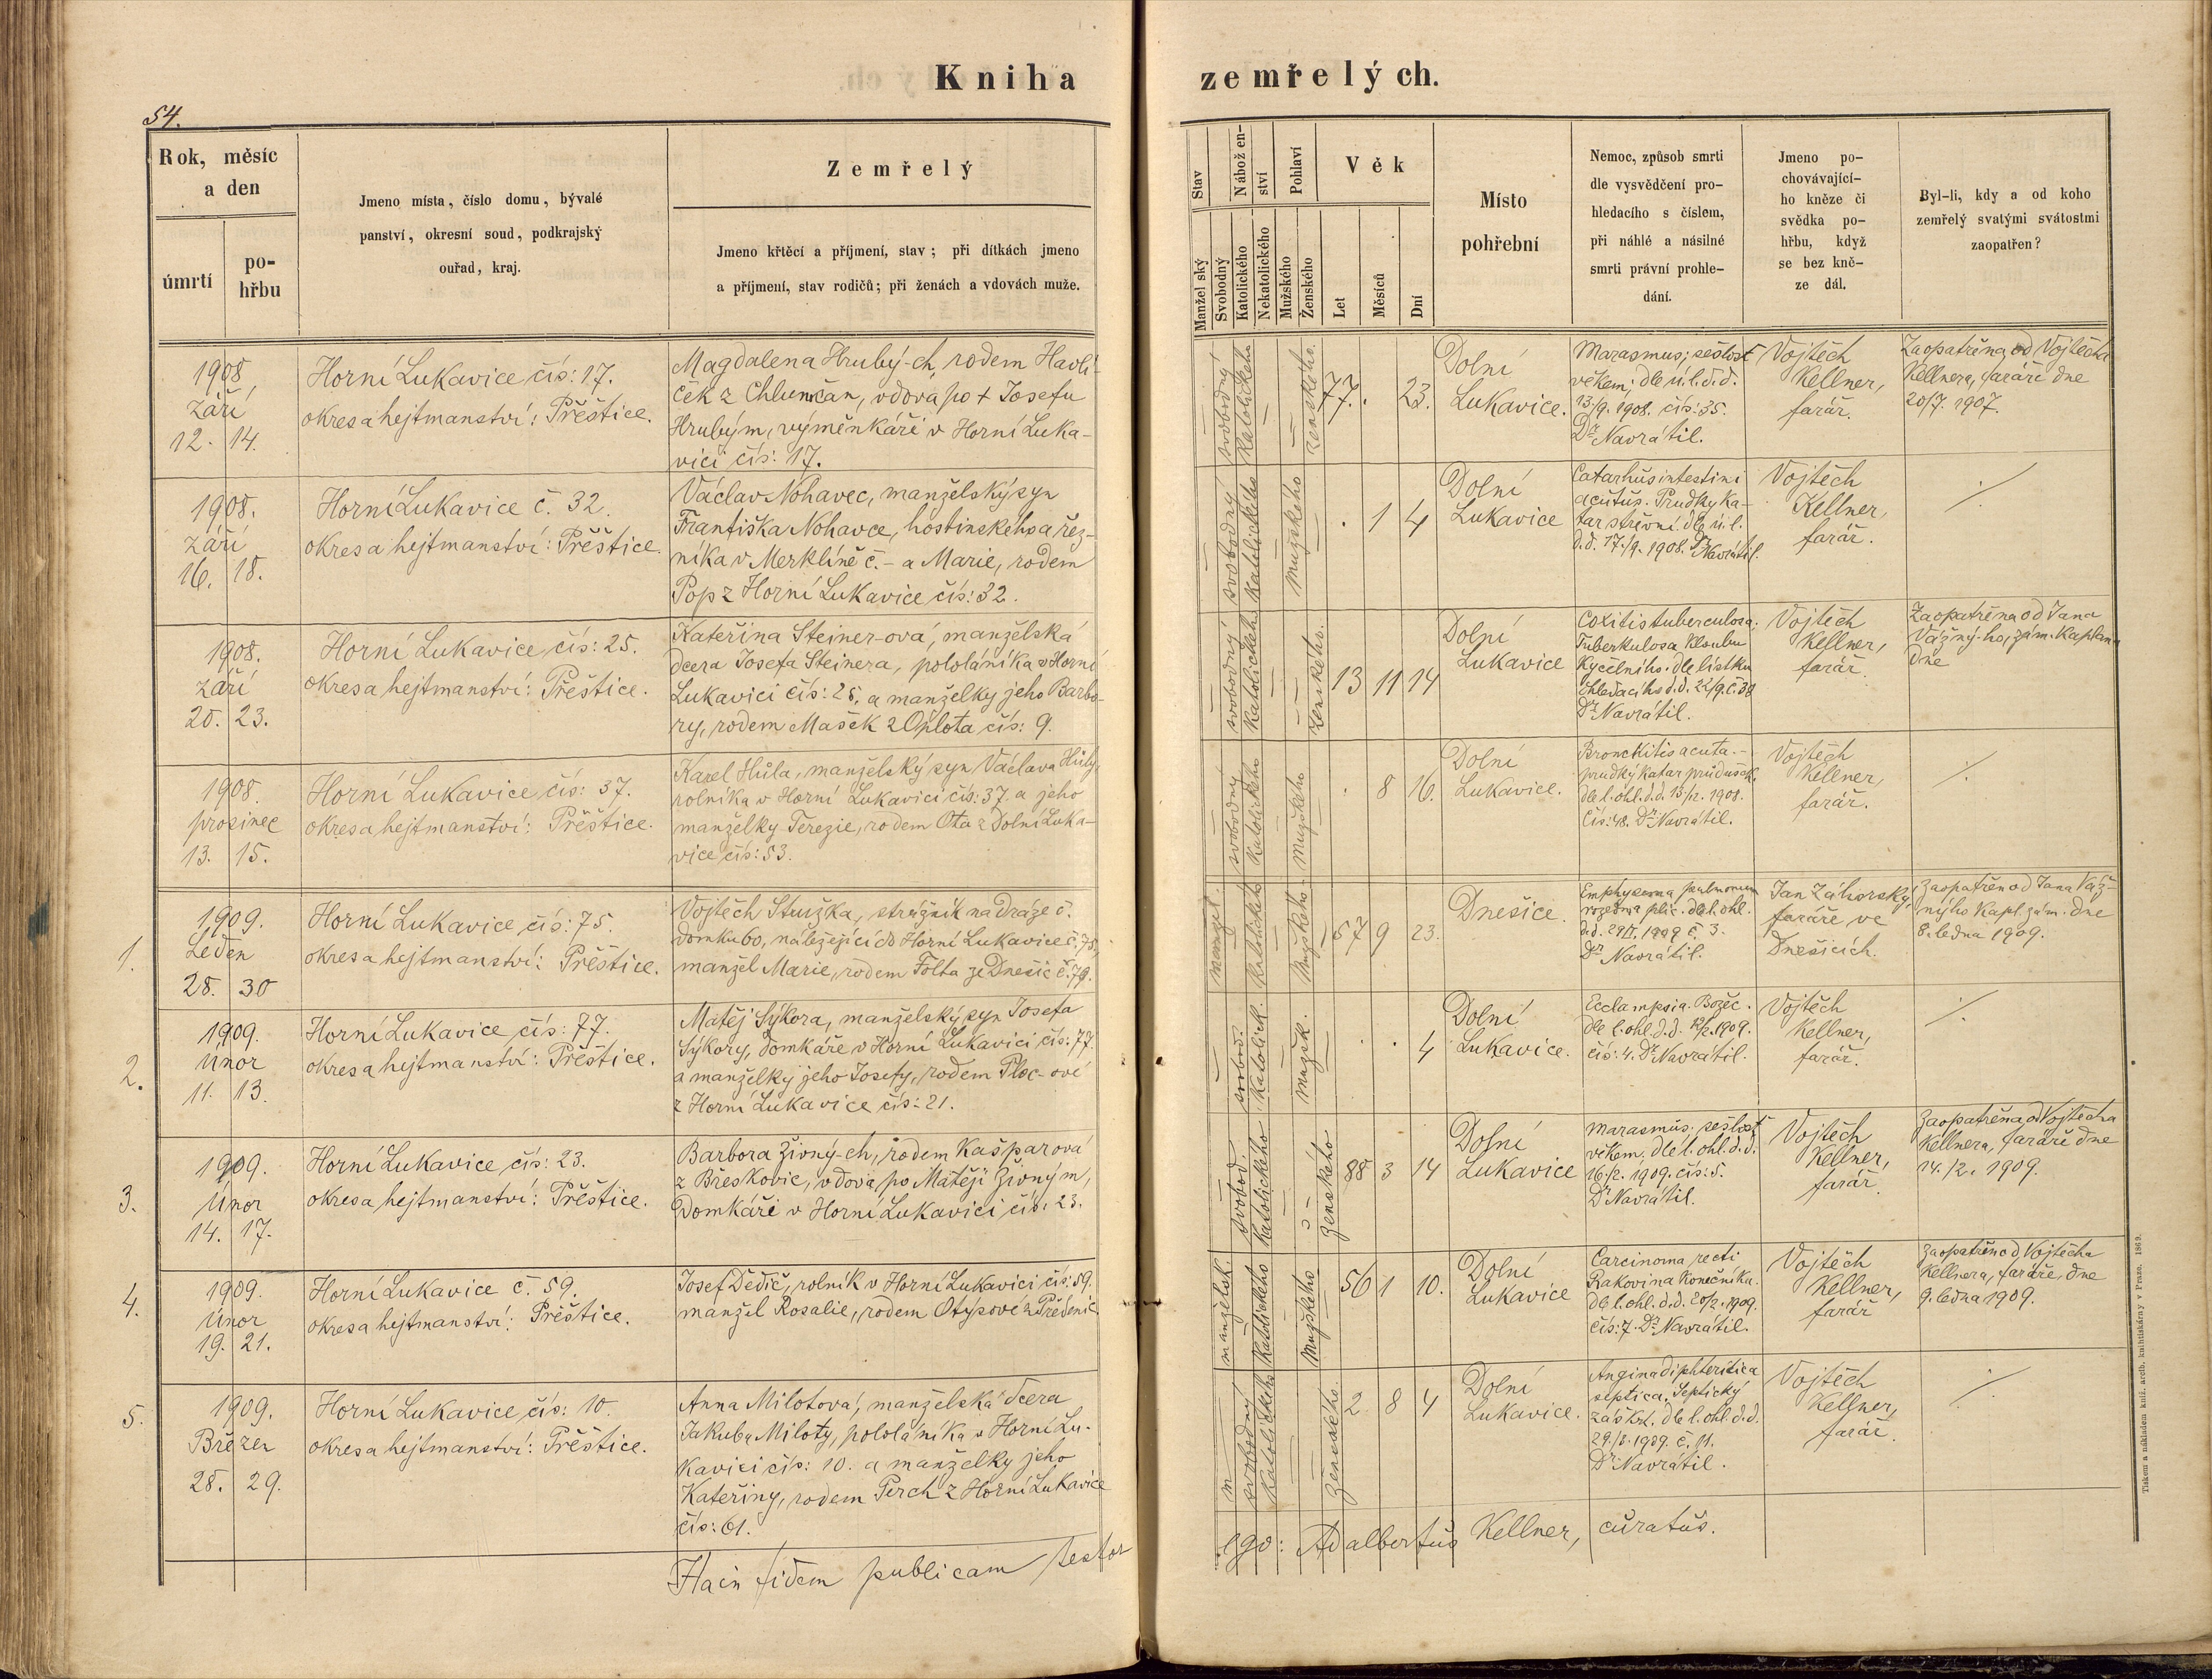 Kniha zemřelých.
54.
Rok, měsíc
a den
úmrtí
po-
hřbu
Jmeno místa, číslo domu, bývalé
panství, okresní soud, podkrajský
ouřad, kraj.
Zemřelý
Jmeno křtěcí a příjmení, stav; při dítkách jmeno
a příjmení, stav rodičů; při ženách a vdovách muže.
Stav
Manželský
Svobodný
Nábožen-
ství
Katolického
Nekatolického
Pohlaví
Mužského
Ženského
Věk
Let
Měsíců
Dní
Místo
pohřební
Nemoc, způsob smrti
dle vysvědčení pro-
hledacího s číslem,
při náhlé a násilné
smrti právní prohle-
dání.
Jmeno po-
chovávající-
ho kněze či
svědka po-
hřbu, když
se bez kně-
ze dál.
Byl-li, kdy a od koho
zemřelý svatými svátostmi
zaopatřen?
1908
září
12. 14.
Horní Lukavice čís: 17.
okres a hejtmanství: Přeštice.
Magdalena Hrubý-ch, rodem Havlí-
ček z Chlumčan, vdova po + Josefu
Hrubým, výměnkáři v Horní Luka-
vici čís: 17.
svobodný
Katolického
ženského.
77. . 23.
Dolní
Lukavice.
Marasmus; sešlost
věkem; dle ú.l.d.d.
13./9. 1908. čís: 35.
Dr Navrátil.
Vojtěch
Kellner,
farář.
Zaopatřena od Vojtěcha
Kellnera, faráře dne
20/7. 1907.
1908.
září
16. 18.
Horní Lukavice č. 32.
okres a hejtmanství: Přeštice.
Václav Nohavec, manželský syn
Františka Nohavce, hostinského a řez-
níka v Merklíně č. - a Marie, rodem
Pop z Horní Lukavice čís: 32.
svobodný
Katolického
mužského
. 1 4
Dolní
Lukavice
Catarhus intestini
acutus. Prudký ka-
tar střevní, dle ú.l.
d.d. 17./9. 1908. Dr Navrátil.
Vojtěch
Kellner,
farář.
./.
1908.
září
20. 23.
Horní Lukavice čís: 25.
okres a hejtmanství: Přeštice.
Kateřina Steiner-ová, manželská
dcera Josefa Steinera, pololáníka v Horní
Lukavici čís: 25, a manželky jeho Barbo-
ry, rodem Mašek z Oplota čís: 9.
svobodný
Katolického
ženského.
13 11 14
Dolní
Lukavice
Coxitis tuberculosa;
Tuberkulosa kloubu
kyčelního. dle lístku
ohledacího d.d. 22/9. č. 38
Dr Navrátil.
Vojtěch
Kellner,
farář.
Zaopatřena od Jana
Vážný-ho, zám. kaplana
dne
1908.
prosinec
13. 15.
Horní Lukavice čís: 37.
okres a hejtmanství: Přeštice.
Karel Hůla, manželský syn Václava Hůly,
rolníka v Horní Lukavici čís: 37. a jeho
manželky Terezie, rodem Ota z Dolní Luka-
vice čís: 53.
svobodný
Katolického
Mužského
. 8 16.
Dolní
Lukavice.
Bronchitis acuta. -
prudký katar průdušek.
dle l. ohl. d.d. 13/12. 1908.
čís: 48. Dr Navrátil.
Vojtěch
Kellner,
farář.
./.
1.
1909.
Leden
28. 30
Horní Lukavice čís: 75.
okres a hejtmanství: Přeštice.
Vojtěch Stružka, strážník na dráze č.
domku 60, náležející do Horní Lukavice č. 75,
manžel Marie, rodem Tolta ze Dnešic č. 79.
manžel.
Katolického
Mužského
57 9 23.
Dnešice.
Emphysema pulmonum
rozedma plic. dle l. ohl.
d.d. 29/1. 1909 č. 3.
Dr Navrátil.
Jan Záhorský,
faráře ve
Dnešicích.
Zaopatřen od Jana Váž-
nýho kapl. zám. dne
8. ledna 1909.
2.
1909.
Únor
11. 13.
Horní Lukavice čís: 77.
okres a hejtmanství: Přeštice.
Matěj Sýkora, manželský syn Josefa
Sýkory, domkáře v Horní Lukavici čís: 77.
a manželky jeho Josefy, rodem Ploc-ové
z Horní Lukavice čís: 21.
svobod.
Katolick.
mužsk.
. . 4
Dolní
Lukavice.
Ecclampsia. Božec.
dle l. ohl. d.d. 12/2. 1909.
čís: 4. Dr Navrátil.
Vojtěch
Kellner,
farář.
./.
3.
1909.
Únor
14. 17.
Horní Lukavice čís: 23.
okres a hejtmanství: Přeštice.
Barbora Živný-ch, rodem Kašparová
z Břeskovic, vdova po Matěji Živným,
Domkáři v Horní Lukavici čís: 23.
svobod.
Katolického
ženského
88 3 14
Dolní
Lukavice
Marasmus. sešlost
věkem, dle l. ohl. d.d.
16/2. 1909. čís: 5.
Dr Navrátil.
Vojtěch
Kellner,
farář.
Zaopatřena od Vojtěcha
Kellnera, faráře dne
14./2. 1909.
4.
1909.
Únor
19. 21.
Horní Lukavice č. 59.
okres a hejtmanství: Přeštice.
Josef Dědič, rolník v Horní Lukavici čís: 59.
manžel Rosalie, rodem Otýsové z Předenic
manželsk.
Katolického
Mužského
56 1 10.
Dolní
Lukavice
Carcinoma recti
Rakovina konečníka.
dle l. ohl. d.d. 20/2. 1909.
čís: 7. Dr Navrátil.
Vojtěch
Kellner,
farář
Zaopatřen od Vojtěcha
Kellnera, faráře, dne
9. ledna 1909.
5.
1909.
Březen
28. 29.
Horní Lukavice čís: 10.
okres a hejtmanství: Přeštice.
Anna Milotová, manželská dcera
Jakuba Miloty, pololáníka v Horní Lu-
kavici čís: 10. a manželky jeho
Kateřiny, rodem Perch z Horní Lukavice
čís: 61.
svobodný
Katolického
ženského.
2 8 4
Dolní
Lukavice.
Angina diphteritica
septica. Septický
záškrt. dle l. ohl. d.d.
29./3. 1909. č. 11.
Dr Navrátil.
Vojtěch
Kellner,
farář.
./.
Hacin fidem publicam testor
ego: Adalbertus Kellner, curatus.
Tiskem a nákladem kníž. arcib. knihtiskárny v Praze. 1869.